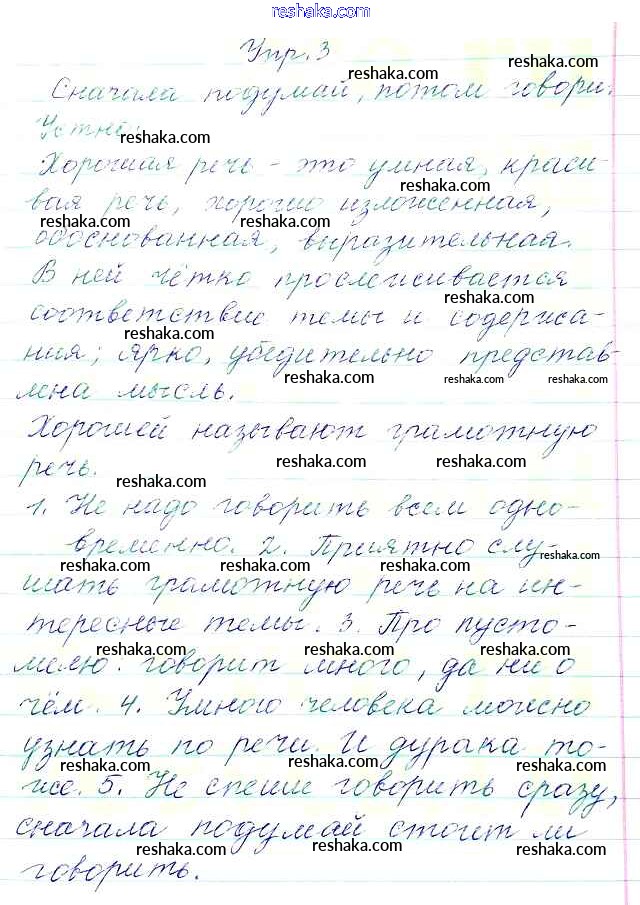 reshaka.com
Упр. 3
reshaka.com
reshaka.com
Сначала подумай, потом говори.
Устно.
reshaka.com
Хорошая речь - это умная, краси-
reshaka.com
вая речь, хорошо изложенная,
reshaka.com reshaka.com
обоснованная, выразительная.
В ней чётко прослеживается
reshaka.com
соответствие темы и содержа-
reshaka.com
ния; ярко, убедительно представ-
reshaka.com reshaka.com reshaka.com
лена мысль.
Хорошей называют грамотную
reshaka.com reshaka.com
речь.
reshaka.com
1. Не надо говорить всем одно-
временно. 2. Приятно слу-
reshaka.com
reshaka.com reshaka.com reshaka.com
шать грамотную речь на ин-
тересные темы. 3. Про пусто-
reshaka.com reshaka.com reshaka.com
мелю: говорит много, да ни о
reshaka.com reshaka.com
чём. 4. Умного человека можно
узнать по речи. И дурака то-
reshaka.com reshaka.com reshaka.com
же. 5. Не спеши говорить сразу,
reshaka.com reshaka.com
сначала подумай стоит ли
reshaka.com reshaka.com
говорить.